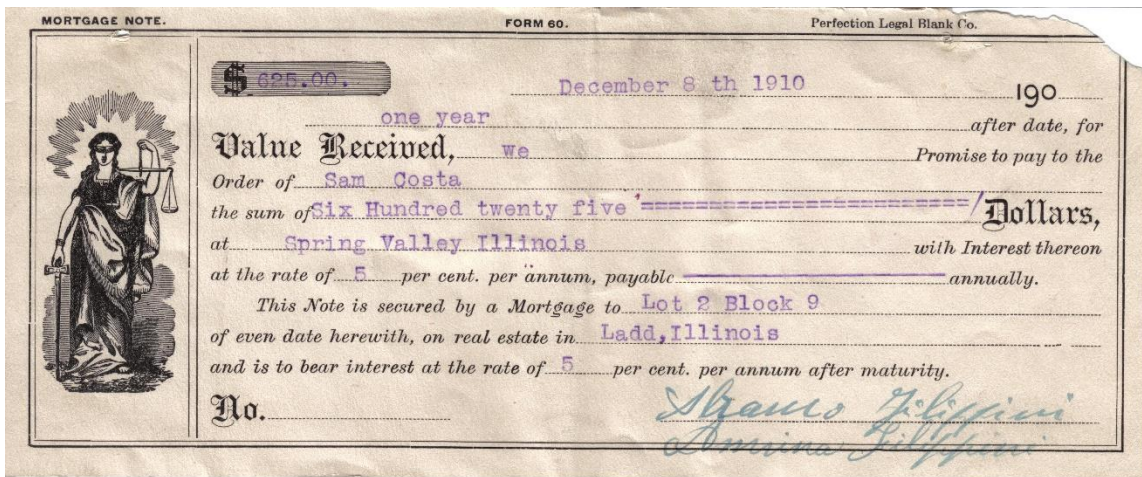 MORTGAGE NOTE. FORM 60. Perfection Legal Blank Co.
$ 625.00. December 8 th 1910 190
one year after date, for
Value Received, we Promise to pay to the
Order of Sam Costa
the sum of Six Hundred twenty five ========================/ Dollars,
at Spring Valley Illinois with Interest thereon
at the rate of 5 per cent. per annum, payable annually.
This Note is secured by a Mortgage to Lot 2 Block 9
of even date herewith, on real estate in Ladd,Illinois
and is to bear interest at the rate of 5 per cent. per annum after maturity.
No. Filippini
Filippini